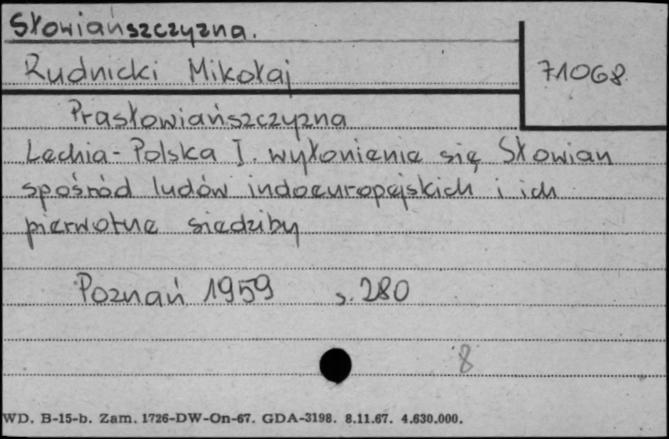 Słowiańszczyzna.
Rudnicki Mikołaj
71068
Prasłowiańszczyzna
Lechia-Polska I. wyłonienie się Słowian
spośród ludów indoeuropejskich i ich
pierwotne siedziby
Poznań 1959 s. 280
8
WD. B-15-b. Zam. 1726-DW-On-67. GDA-3198. 8.11.67. 4.630.000.